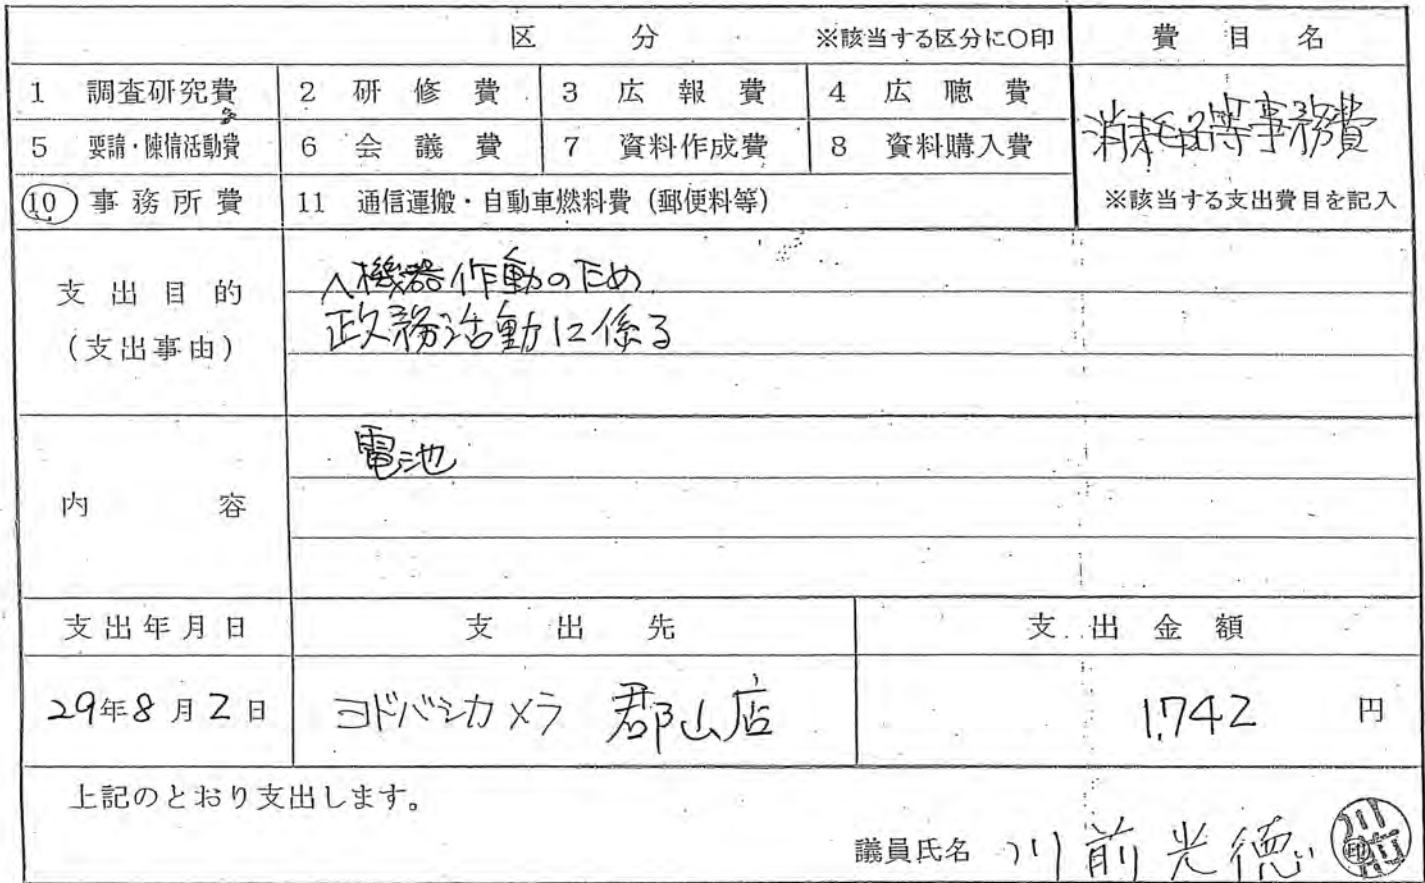 区分 ※該当する区分に○印 費目名
1 調査研究費 2 研修費 3 広報費 4 広聴費
消耗品等事務費
5 要請・陳情活動費 6 会議費 7 資料作成費 8 資料購入費
⑩ 事務所費 11 通信運搬・自動車燃料費(郵便料等) ※該当する支出費目を記入
支出目的
(支出事由)
機器作動のため
政務活動に係る
内容
電池
支出年月日 支出先 支出金額
29年8月2日 ヨドバシカメラ 郡山店 1,742 円
上記のとおり支出します。
議員氏名 川前光徳 印